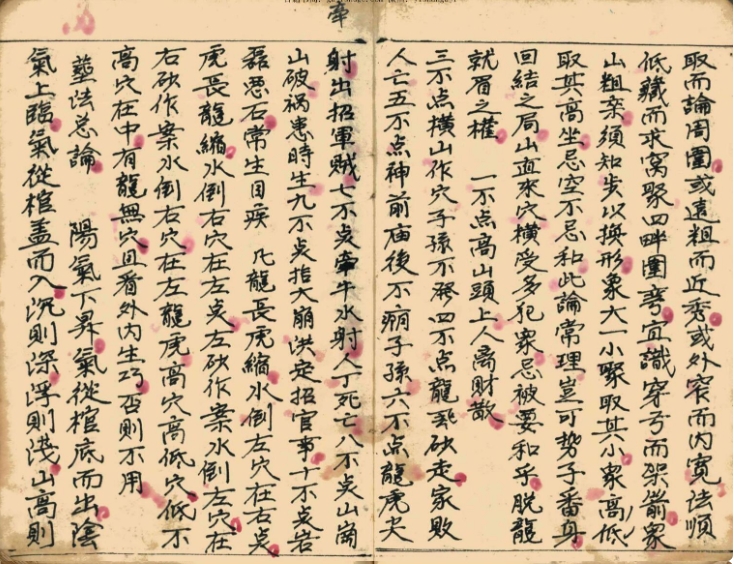 取而論周圍或遠粗而近秀或外窄而內寬法順
低藏而求窩聚四畔圍彎宜識穿弓而架箭衆
山粗來須知步以換形衆大一小聚取其小衆高低
取其高坐忌空不忌和此論常理豈可势子番身
回結之局山直來穴橫受多犯衆忌被要和乎脫龍
就眉之權 一不点高山頭上人离財散
三不点橫山作穴子孫不 四不点龍 砂走家敗
人亡五不点神前庙後不 子孫六不点龍虎尖
射出招軍賊七不点牽牛水射人丁死亡八不点山崗
山破祸患時生九不点指大崩洪定招官事十不点岩
磊恶石常生目疾 凡龍長虎縮水倒左穴在右点
虎長龍縮水倒右穴在左点左砂作案水倒左穴在
右砂作案水倒右穴在左龍虎高穴高低穴低不
高穴在中有龍無穴且看外内生巧否則不用
塟法总論 陽氣下昇氣從棺底而出陰
氣上臨氣從棺盖而入沉則深浮則淺山高則
牽